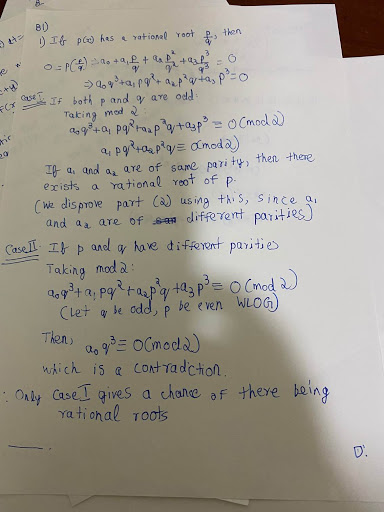 B1)
1) If p(x) has a rational root p/q, then
0 = p(p/q) = a₀ + a₁ p/q + a₂ p²/q² + a₃ p³/q³ = 0
⇒ a₀q³ + a₁pq² + a₂p²q + a₃p³ = 0
Case I If both p and q are odd:
Taking mod 2:
a₀q³ + a₁pq² + a₂p²q + a₃p³ ≡ 0 (mod 2)
a₁pq² + a₂p²q ≡ 0 (mod 2)
If a₁ and a₂ are of same parity, then there
exists a rational root of p.
(We disprove part (2) using this, since a₁
and a₂ are of different parities)
Case II If p and q have different parities
Taking mod 2:
a₀q³ + a₁pq² + a₂p²q + a₃p³ ≡ 0 (mod 2)
(Let q be odd, p be even WLOG)
Then, a₀q³ ≡ 0 (mod 2)
which is a contradction.
∴ Only Case I gives a chance of there being
rational roots